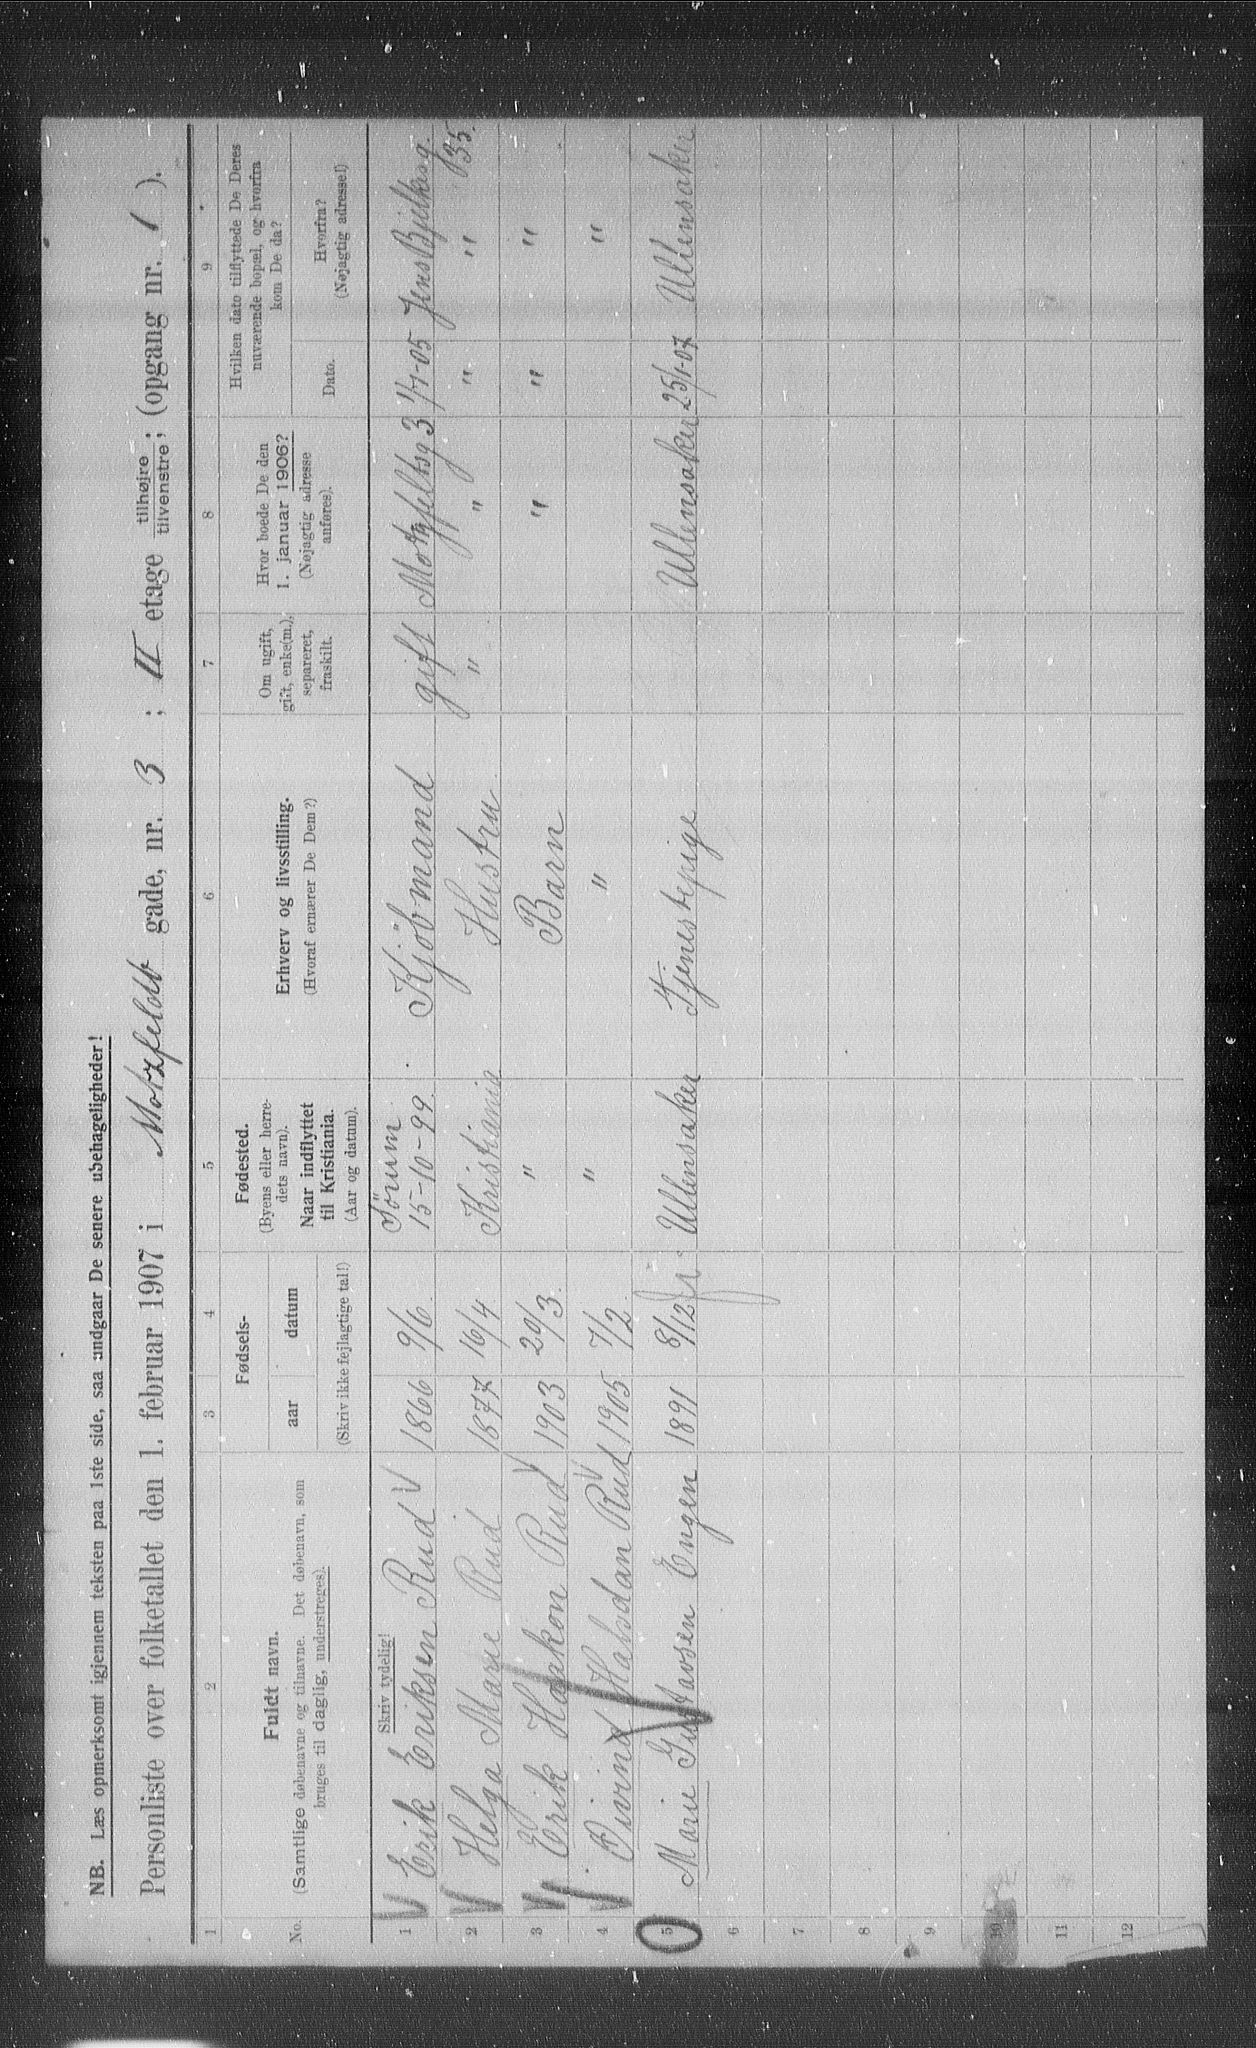 NB. Læs opmerksomt igjennem teksten paa 1ste side, saa undgaar De senere ubehageligheder!
Personliste over folketallet den 1. februar 1907 i Motzfeldt gade, nr. 3 ; II etage tilhøjre / tilvenstre ; (opgang nr. 1 ).
1 2 3 4 5 6 7 8 9
No.
Fuldt navn.
(Samtlige døbenavne og tilnavne. Det døbenavn, som
bruges til daglig, understreges).
Fødsels-
aar datum
(Skriv ikke fejlagtige tal!)
Fødested.
(Byens eller herre-
dets navn).
Naar indflyttet
til Kristiania.
(Aar og datum).
Erhverv og livsstilling.
(Hvoraf ernærer De Dem?)
Om ugift,
gift, enke(m.),
separeret,
fraskilt.
Hvor boede De den
1. januar 1906?
(Nøjagtig adresse
anføres).
Hvilken dato tilflyttede De Deres
nuværende bopæl, og hvorfra
kom De da?
Dato.
Hvorfra?
(Nøjagtig adresse!)
Skriv tydelig!
1 Erik Eriksen Rud 1866 9/6 Sörum 15-10-99. Kjöbmand gift Motzfeltsg 3 1/1-05 Jens Bjelkesg. 135.
2 Helga Marie Rud 1877 16/4 Kristiania Hustru " " " "
3 Erik Haakon Rud 1903 20/3. " Barn " " "
4 Eivind Halvdan Rud 1905 7/2. " " "
5 Marie Gustavsen Engen 1891 8/12 Ullensaker Tjenestepige Ullensaker 25/1-07 Ullensaker
6
7
8
9
10
11
12